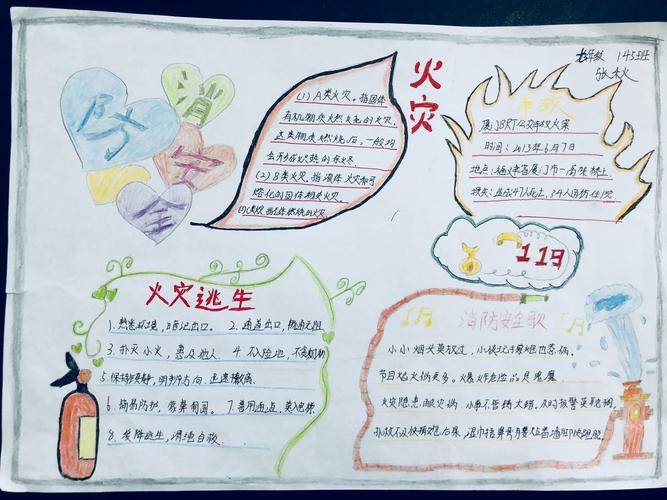 七年级 143班
张秋
消
防
安
全
火灾
(1) A类火灾。指固体
有机物质燃烧的火灾
这类物质燃烧后,一般均
会形成灼热的余烬
(2) B类火灾,指液体火灾和可
熔化的固体物质火灾
指气体燃烧的火灾
厦门BRT公交车放火案
时间:2013年6月7日
地点:福建省厦门市
损失:造成47人死亡,34人因伤住院
119
火灾逃生
1. 熟悉环境,暗记出口。 2. 通道出口,畅通无阻
3. 扑灭小火,惠及他人 4. 不入险地,不贪财物
5. 保持镇静,明辨方向,迅速撤离
6. 简易防护,蒙鼻匍匐。 7. 善用通道,莫入电梯
8. 缓降逃生,滑绳自救
消防安全歌
小小烟头莫放过,小孩玩
节日焰火祸更多。爆炸危险品是鬼魔
火灾隐患,酿灾祸 小事不管铸大错,及时报警莫耽搁
扑救不及快撤